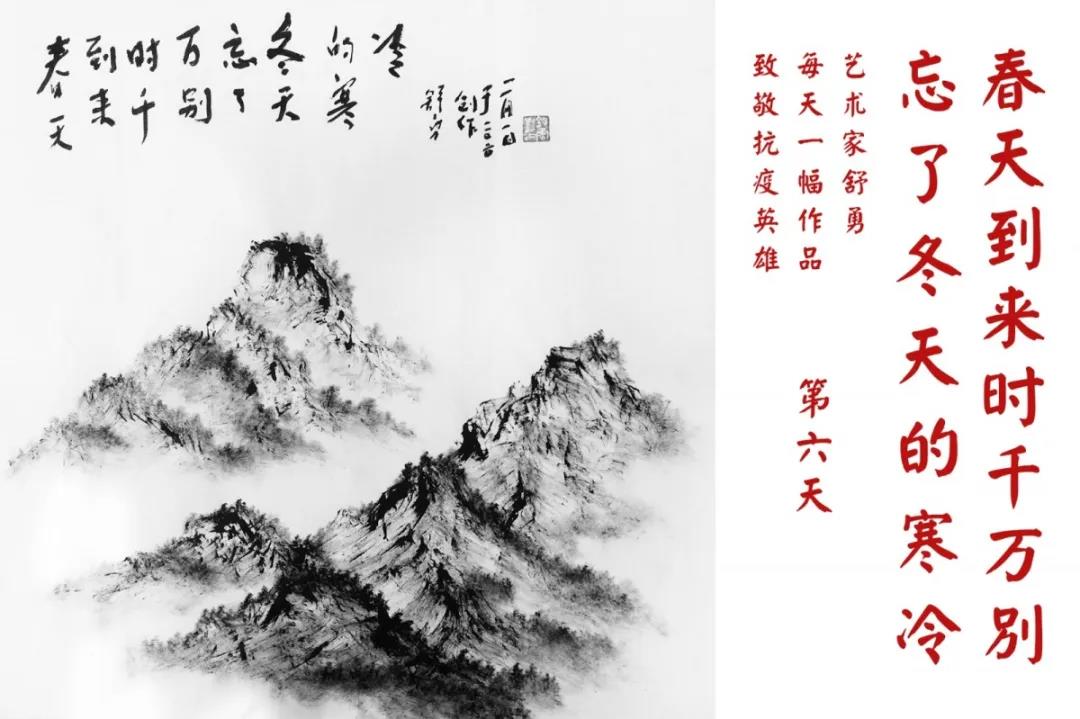 春天
到来
时千
万别
忘了
冬天
的寒
冷
舒勇
创作
春天到来时千万别
忘了冬天的寒冷
艺术家舒勇
每天一幅作品
致敬抗疫英雄
第六天